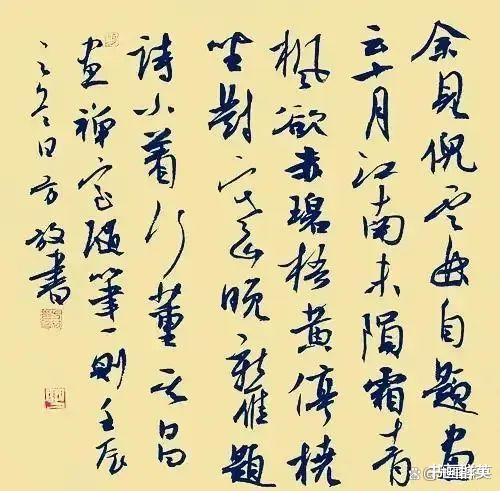 余見倪雲林自題畫
云十月江南未隕霜青
楓欲赤碧梧黄停橈
坐對西山晚新雁題
詩小着行董其昌
畫禪室隨筆一則壬辰
之冬日方放書